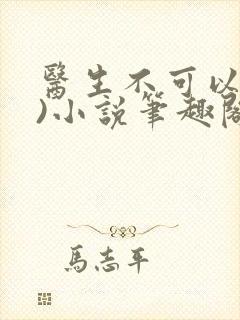 醫生不可以
)小說筆趣閣
馬志平